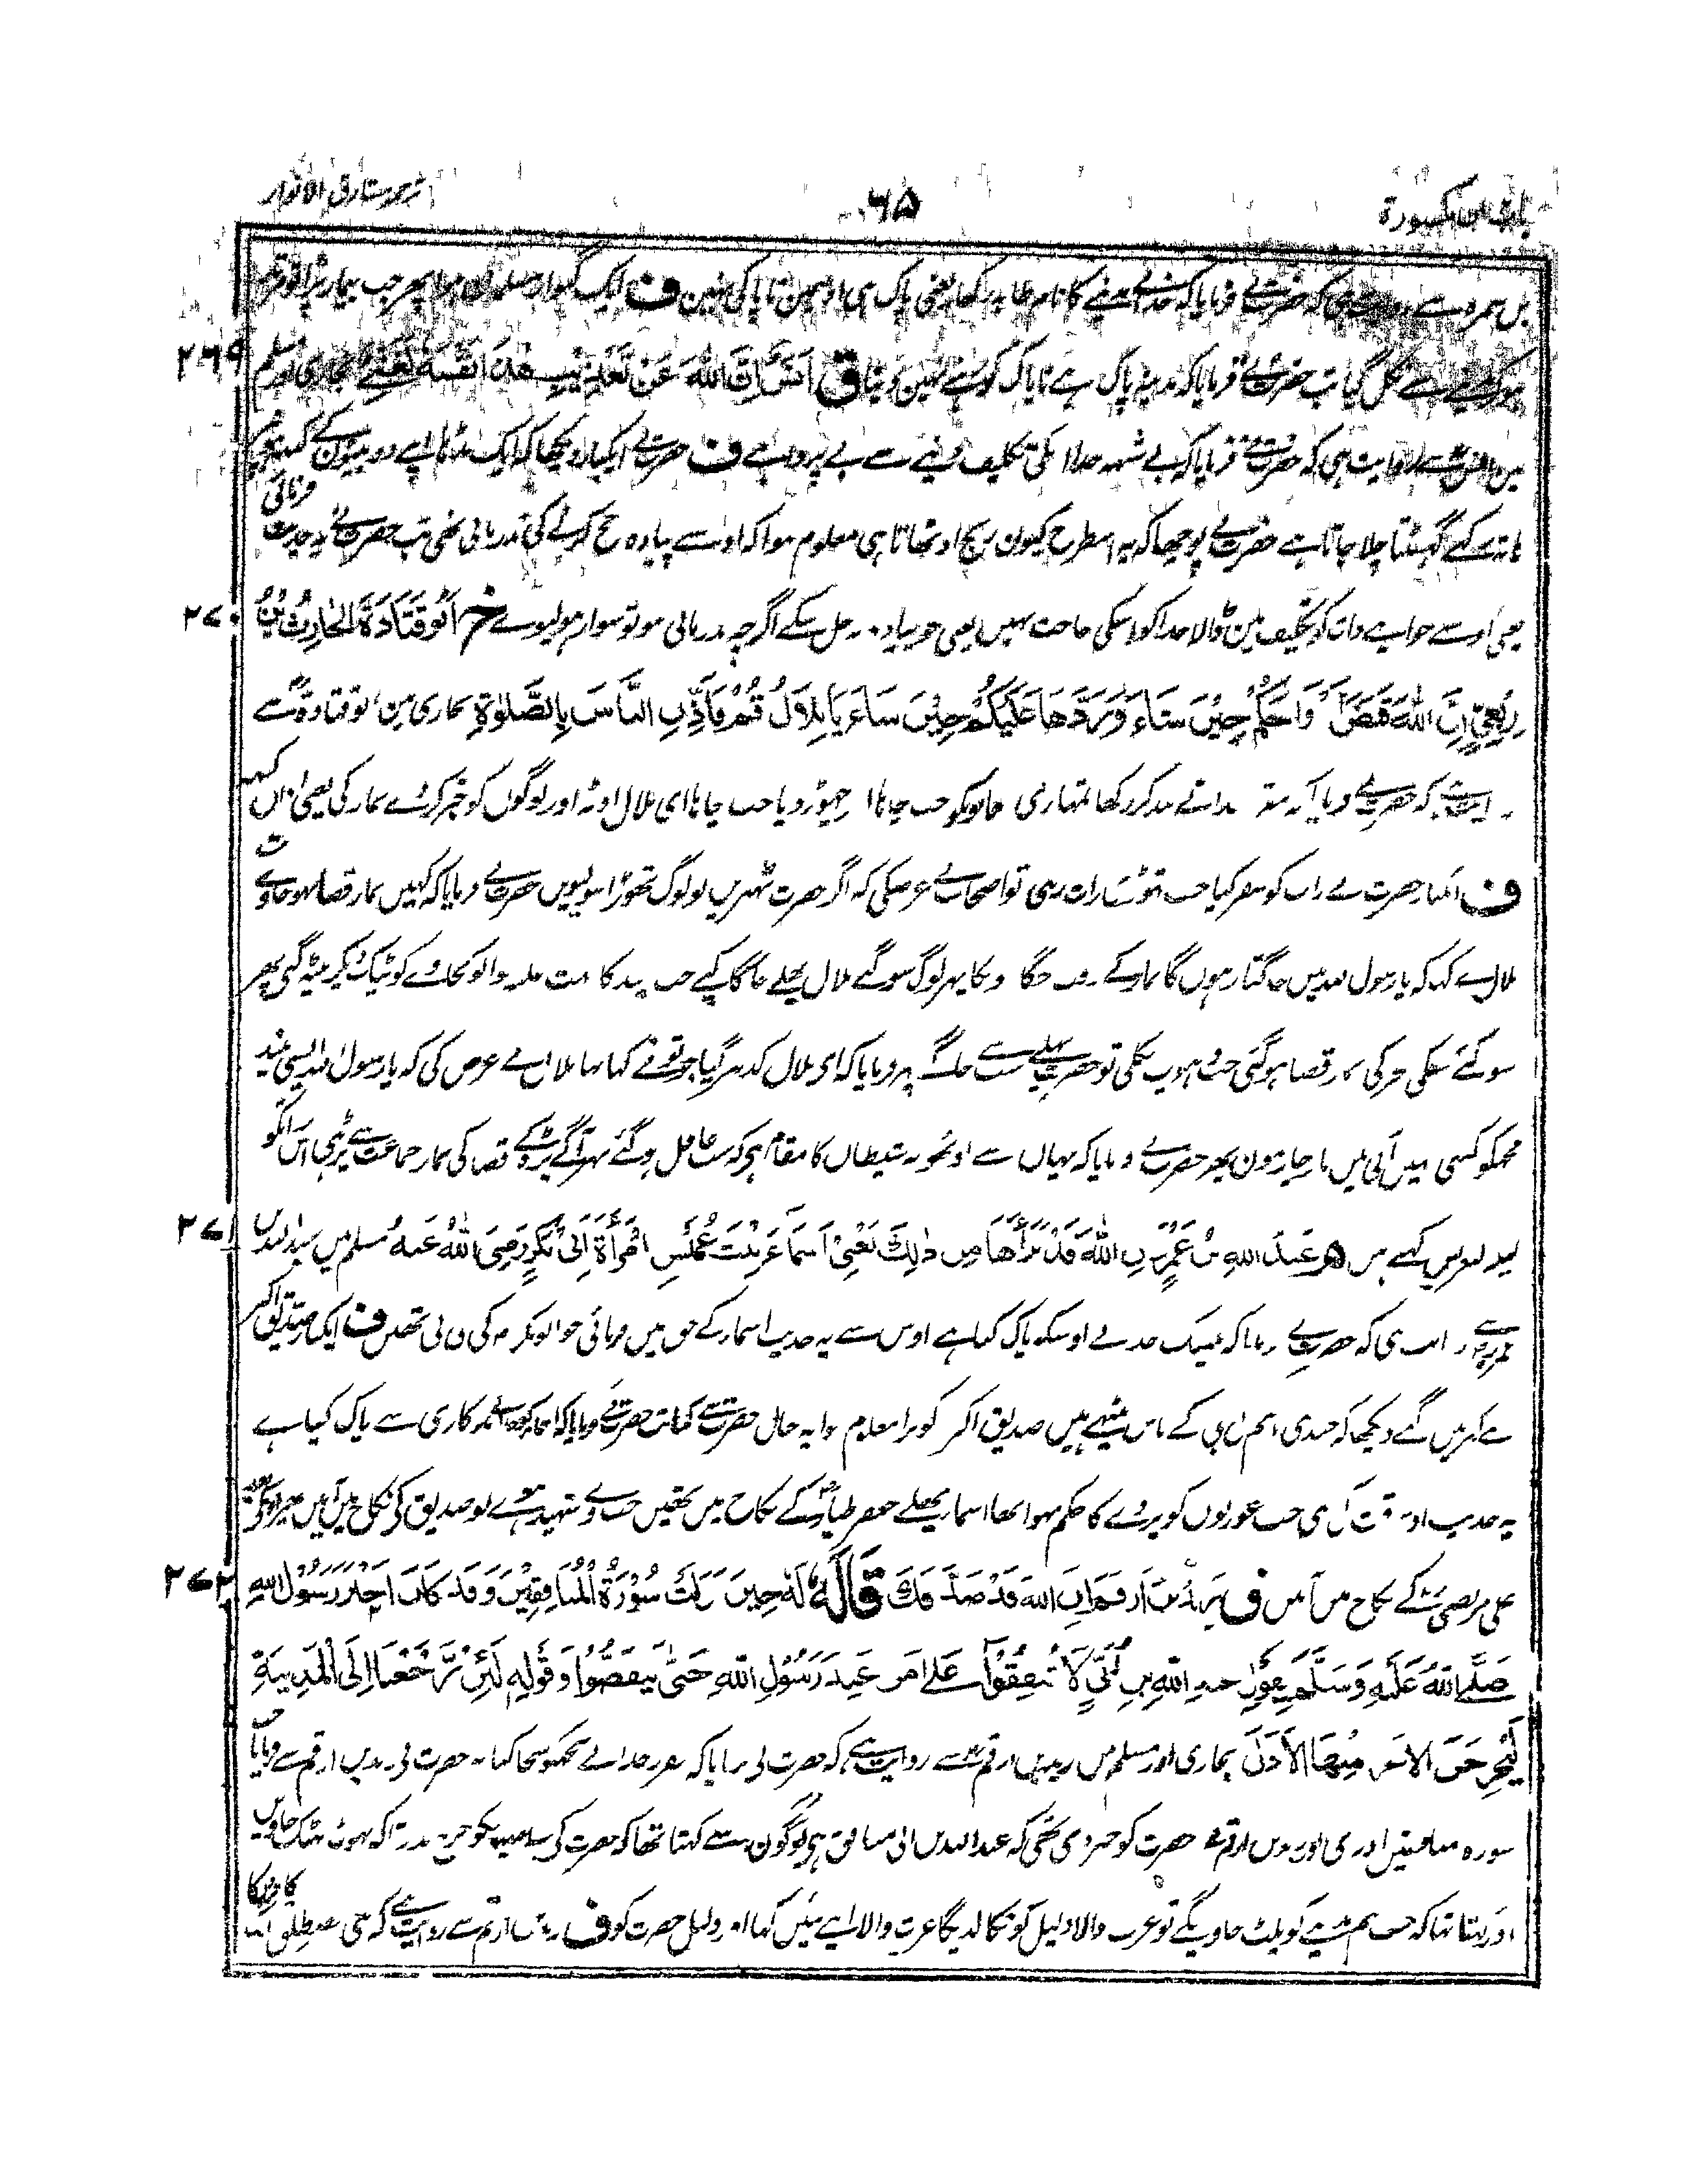 باب ان مکسورة
۶۵
ترجمہ مشارق الانوار
بن سمرہ سے روایت ہی کہ حضرت نے فرمایا کہ خدا نے مدینے کا نام طابہ رکھا یعنی پاک ہی اوسمین ناپاکی نہین ف ایک گنوار مسلمان ہوا پھر جب بیمار پڑا تو
ہوکر مدینے سے نکل گیا تب حضرت نے فرمایا کہ مدینہ پاک ہے ناپاک کو رہنے نہین دیتا ق انس ان الله عن تعذيب هذا نفسه لغني بخاری اور مسلم
۲۶۹
مین انس سے روایت ہی کہ حضرت نے فرمایا کہ بے شبہہ خدا کی تکلیف دینے سے بے پروا ہے ف حضرت نے ایکبار دیکھا کہ ایک بڈھا اپنے دو بیٹون کے
کے گھسٹتا چلا جاتا ہے حضرت نے پوچھا کہ یہ اسطرح کیون رنج اوٹھاتا ہی معلوم ہوا کہ اوسنے پیادہ حج کرنے کی نذر مانی تھی تب حضرت نے یہ حدیث فرمائی
یعنی اوسے جو اپنے ذات کو تکلیف مین ڈالا خدا کو اسکی حاجت نہیں یعنی جو پیادہ نہ چل سکے اگرچہ نذر مانی ہو تو سوار ہو لیوے خ ابو قتادة الحارث بن
۲۷۰
ربعي ان الله قبض ارواحكم حين شاء وردها عليكم حين شاء يا بلال قم فاذن الناس بالصلوة بخاری مین ابو قتادہ سے
روایت ہے کہ حضرت نے فرمایا کہ مقرر خدا نے بند کر رکھا تمہاری جانونکو جب چاہا اور چھوڑ دیا جب چاہا ای بلال اوٹھ اور لوگوں کو خبر کردے نماز کی یعنی اذان کہہ
ف ایکبار حضرت نے رات کو سفر کیا جب تھوڑی رات رہی تو اصحاب نے عرض کی کہ اگر حضرت ٹھہریں تو لوگ تھوڑا سو لیویں حضرت نے فرمایا کہ کہیں نماز قضا نہو جاوے
بلال نے کہا کہ یا رسول الله میں جاگتا رہوں گا نماز کے وقت جگا دونگا پھر لوگ سو گئے بلال پہلے جاگا کیے جب نیند کا غلبہ ہوا تو کجاوے کو ٹیک دیکر بیٹھ گئے پھر
سو گئے سبکی فجر کی نماز قضا ہو گئی جب دھوپ نکلی تو حضرت پہلے سب سے جاگے پھر فرمایا کہ ای بلال کدھر گیا جو تو نے کہا تھا بلال نے عرض کی کہ یا رسول الله ایسی نیند
مجھکو کبھی نہیں آئی میں ناچار ہون پھر حضرت نے فرمایا کہ یہاں سے اوٹھو یہ شیطان کا مقام ہے کہ سب غافل ہو گئے پھر آگے بڑھ کے قضا کی نماز جماعت سے پڑھی اس رات کو
لیلة التعریس کہتے ہیں م عبد الله بن عمرو ان الله قد برأها من ذلك يعني اسماء بنت عميس امرأة ابي بكر رضي الله عنه مسلم میں عبد الله بن
۲۷۱
عمرو سے روایت ہی کہ حضرت نے فرمایا کہ بیشک خدا نے اوسکو پاک کیا ہے اوس سے یہ حدیث اسماء کے حق میں فرمائی جو ابو بکر کی بی بی تھیں ف ایکبار صدیق اکبر
نے گھر میں گئے دیکھا کہ چند آدمی بنی ہاشم بی بی کے پاس بیٹھے ہیں صدیق اکبر کو برا معلوم ہوا یہ حال حضرت سے کہا تب حضرت نے فرمایا کہ بدکاری سے پاک کیا ہے
یہ حدیث اوس وقت کی ہی جب عورتوں کو پردے کا حکم نہوا تھا اسماء پہلے جعفر طیار کے نکاح میں تھیں جب وے شہید ہوے تو صدیق کی نکاح میں آئیں پھر
علی مرتضی کے نکاح میں آئیں ق زيد بن ارقم ان الله قد صدقك قاله له حين نزلت سورة المنافقين وقد كان اخبر رسول الله
۲۷۲
صلى الله عليه وسلم بقول عبد الله بن ابي لا تنفقوا على من عند رسول الله حتى ينفضوا وقوله لئن رجعنا الى المدينة
ليخرجن الاعز منها الاذل بخاری اور مسلم میں زید بن ارقم سے روایت ہے کہ حضرت نے فرمایا کہ مقرر خدا نے تجھکو سچا کہا یہ حضرت نے زید بن ارقم سے فرمایا جب
سورہ منافقین اوتری اور زید بن ارقم نے حضرت کو خبر دی تھی کہ عبد الله بن ابی منافق لوگون سے کہتا تھا کہ حضرت کی ساتھیونکو خرچ نہ دو تاکہ بھوٹ پھٹک جاویں
اور کہتا تھا کہ جب ہم مدینے کو پلٹ جاوینگے تو عزت والا ذلیل کو نکالدیگا عزت والا اپنے تئیں کہا اور ذلیل حضرت کو ف زید بن ارقم سے روایت ہے کہ